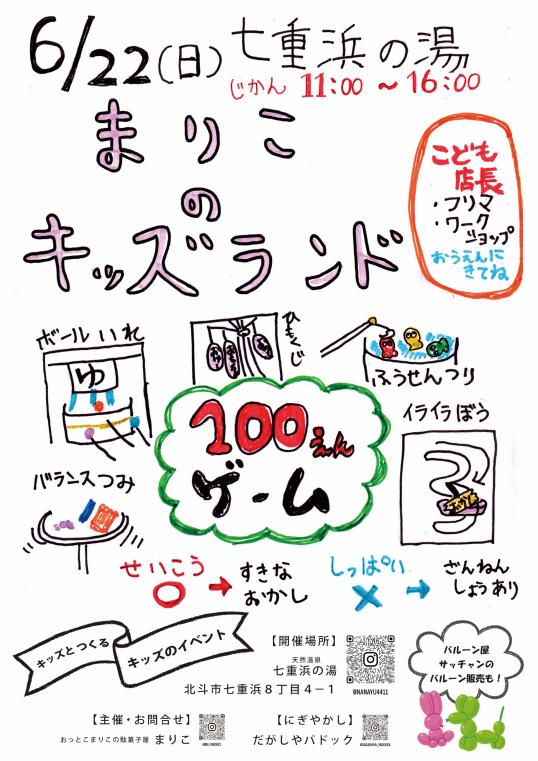 6/22(日) 七重浜の湯
じかん 11:00 ~ 16:00
まりこ
の
キッズランド
こども
店長
・フリマ
・ワーク
ショップ
おうえんに
きてね
ボールいれ
ゆ
ひもくじ
ふうせんつり
100えん
ゲーム
イライラぼう
バランスつみ
せいこう
○→すきな
おかし
しっぱい
×→ざんねん
しょうあり
キッズとつくる
キッズのイベント
【開催場所】
天然温泉
七重浜の湯
北斗市七重浜8丁目4-1
@NANAYU4411
バルーン屋
サッチャンの
バルーン販売も!
【主催・お問合せ】
おっとこまりこの駄菓子屋 まりこ
【にぎやかし】
だがしやパドック